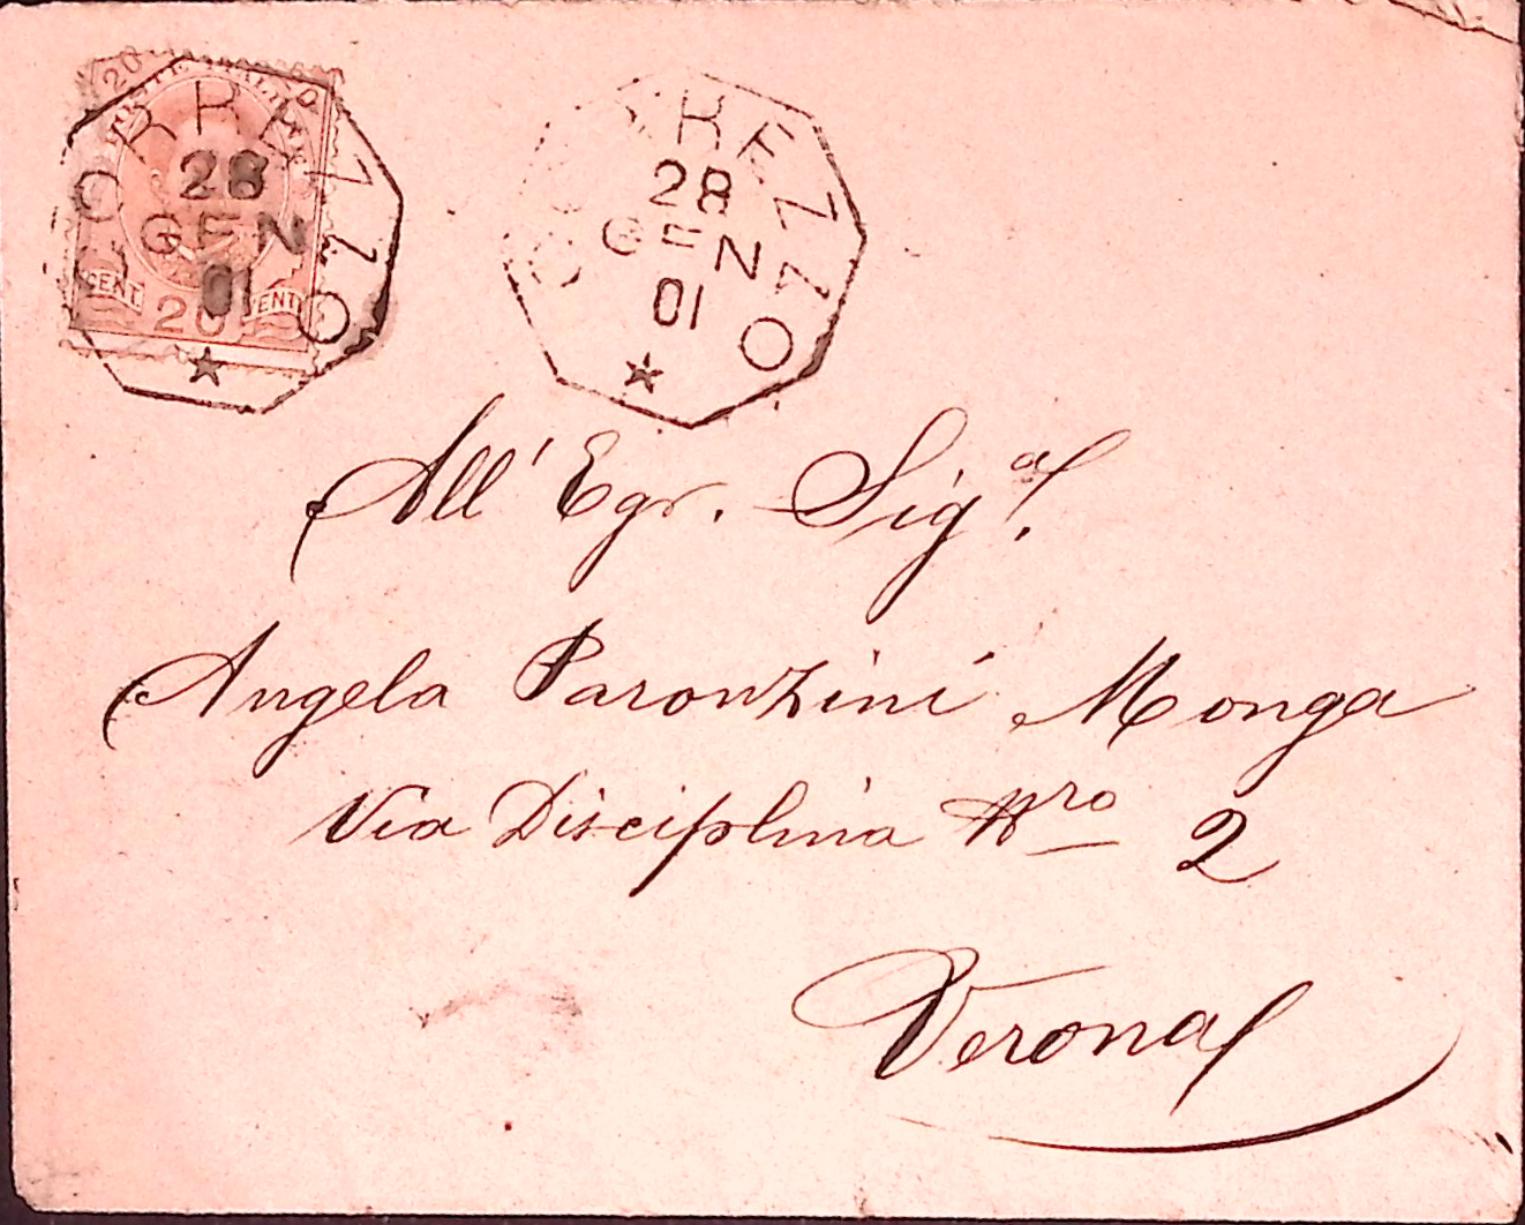 20
POSTE ITALIANE
CENT
20
CENT
28
GEN
01
28
GEN
01
All' Egr. Sigª.
Angela Paronzini Monga
Via Disciplina Nro 2
Verona